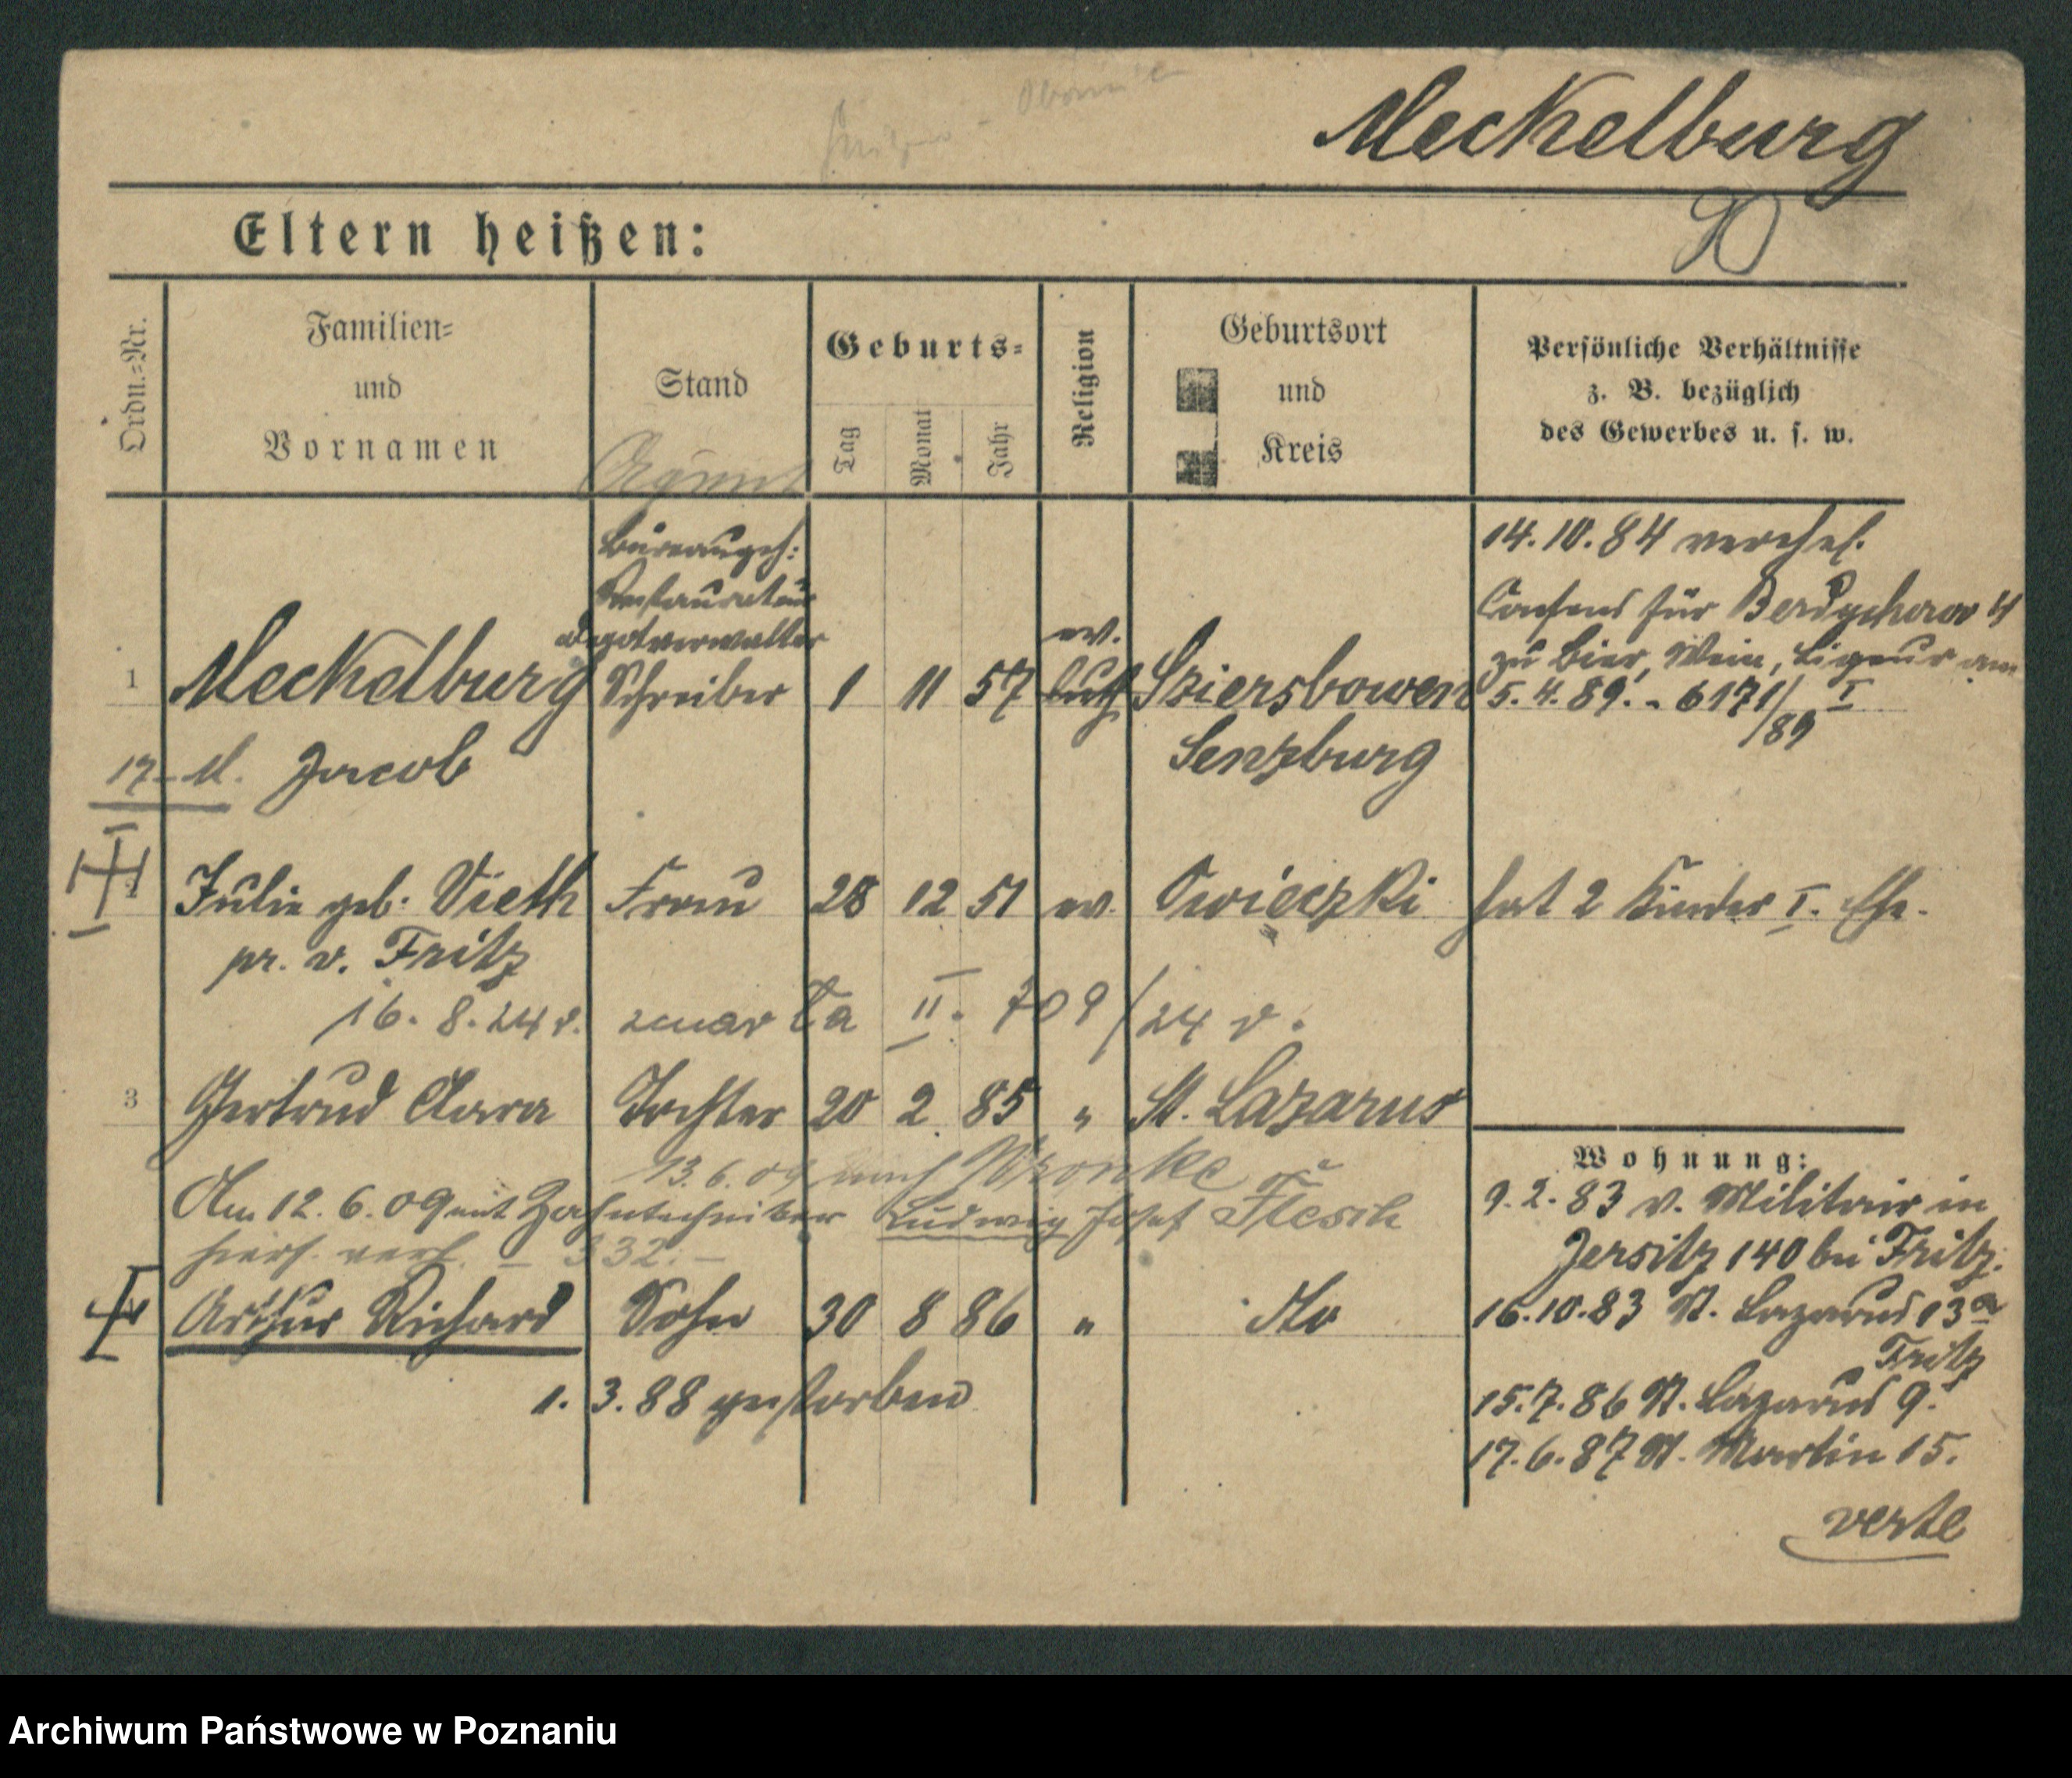 Meckelburg
Eltern heißen:
Ordn.-Nr.
Familien-
und
Vornamen
Stand
Geburts-
Tag
Monat
Jahr
Religion
Geburtsort
und
Kreis
Persönliche Verhältnisse
z. B. bezüglich
des Gewerbes u. s. w.
Agent
Büreaugeh:
Restaurateur
Depotverwalter
1 Meckelburg Schreiber 1 11 57 ev. luth Sziersbowen
Jacob Sensburg
14.10.84 verehel.
Consens für 
zu Bier, Wein, Liqeur am
5.4.89. - 6171/89 I
17 M.
2 Julie geb. Vieth Frau 28 12 51 ev. Owieczki hat 2 Kinder I. Ehe.
pr. v. Fritz
16. 8. 24 v. zmarła II. 709/24 v.
3 Gertrud Clara Tochter 20 2 85 " St. Lazarus
13.6.09 nach Wronke
Am 12. 6. 09 mit Zahntechniker Ludwig Josef
hiers. verh. - 332. -
4 Arthur Richard Sohn 30 8 86 " dto
1. 3. 88 gestorben
Wohnung:
9.2.83 v. Militair in
Jersitz 140 bei Fritz.
16.10.83 St. Lazarus 13a
Fritz
15.7.86 St. Lazarus 9.
17.6.87 St. Martin 15.
verte
Archiwum Państwowe w Poznaniu